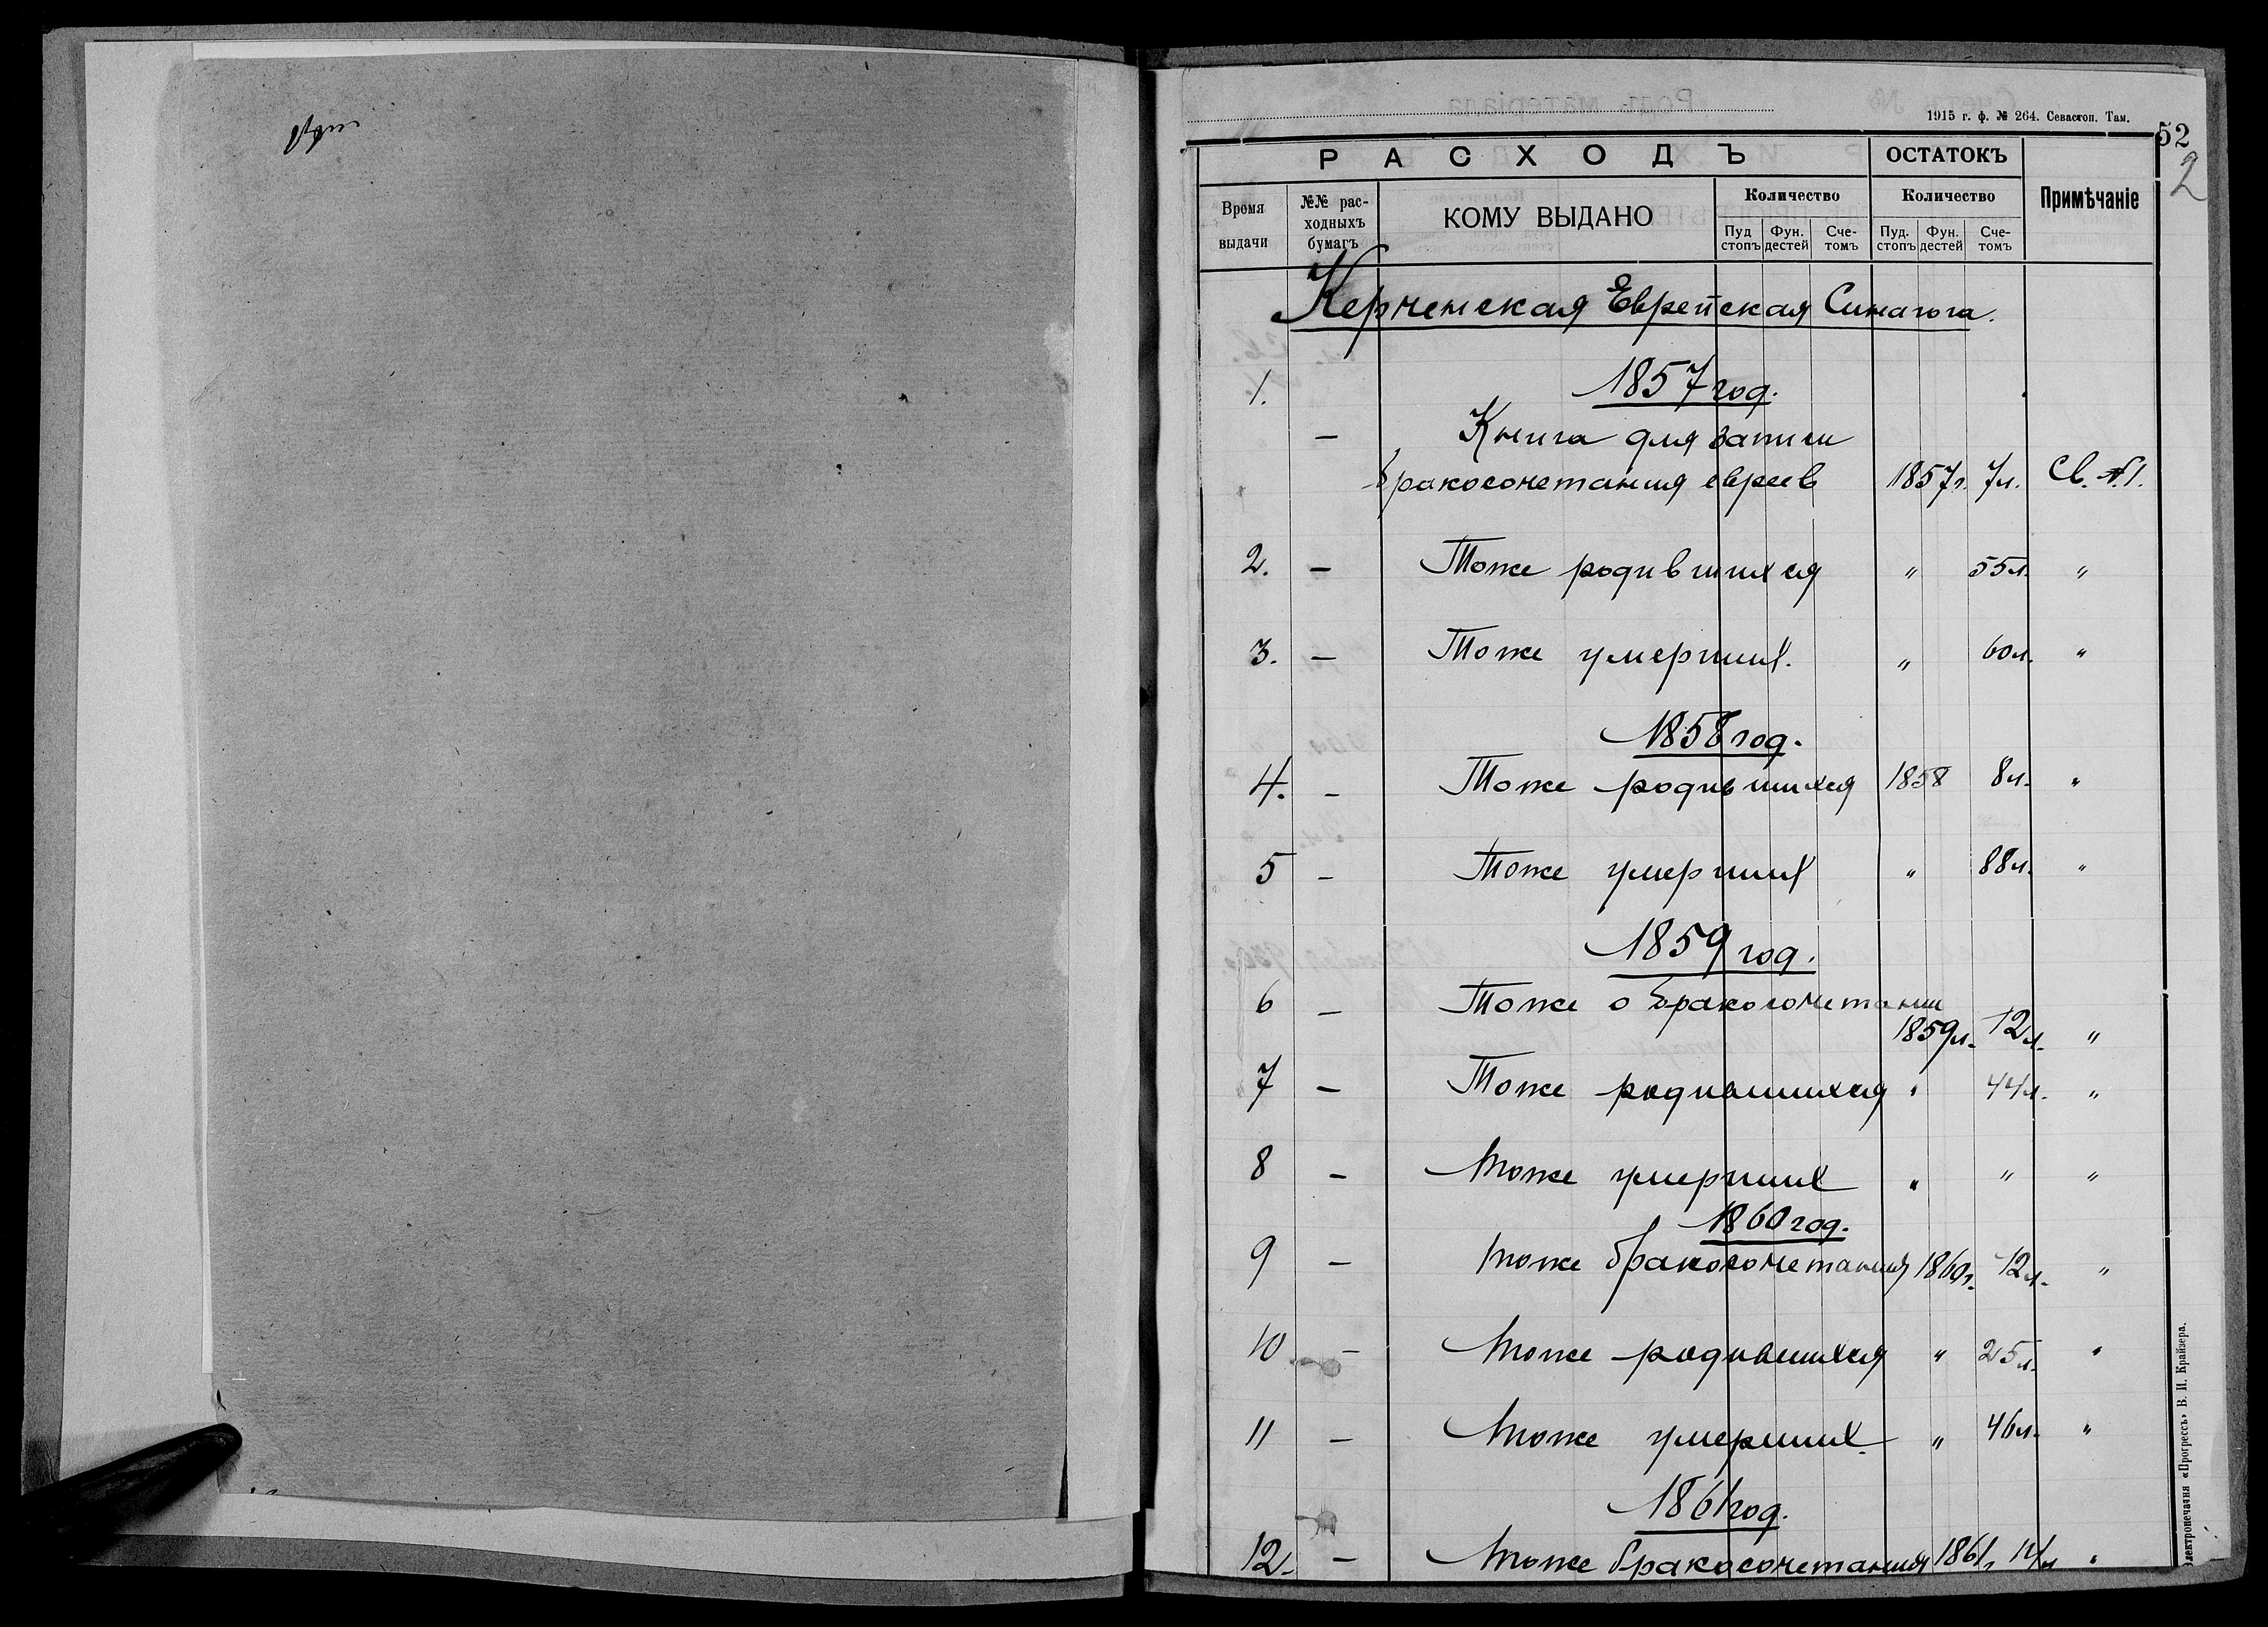 1915 г. ф. № 264. Севастоп. Там.
52
2
РАСХОДЪ ОСТАТОКЪ Примѣчаніе
Время выдачи №№ рас-ходныхъ бумагъ КОМУ ВЫДАНО Количество Количество
Пуд стопъ Фун. дестей Сче-томъ Пуд. стопъ Фун. дестей Сче-томъ
Керченская Еврейская Синагога.
1. 1857 год.
— Книга для записи
бракосочетания евреев 1857г. 7л. Св. №1.
2. — Тоже родившихся " 55л. "
3. — Тоже умерших. " 60л. "
1858 год.
4. — Тоже родившихся 1858 8л. "
5 — Тоже умерших " 88л. "
1859 год.
6 — Тоже о бракосочетании
1859л. 12л. "
7 — Тоже родившихся " 44л. "
8 — Тоже умерших " " "
1860 год.
9 — Тоже бракосочетания 1860г. 12л. "
10 — Тоже родившихся " 25л. "
11 — Тоже умерших " 46л. "
1861 год.
12. — Тоже бракосочетания 1861г "
Электропечатня «Прогрессъ» В. И. Крайзера.